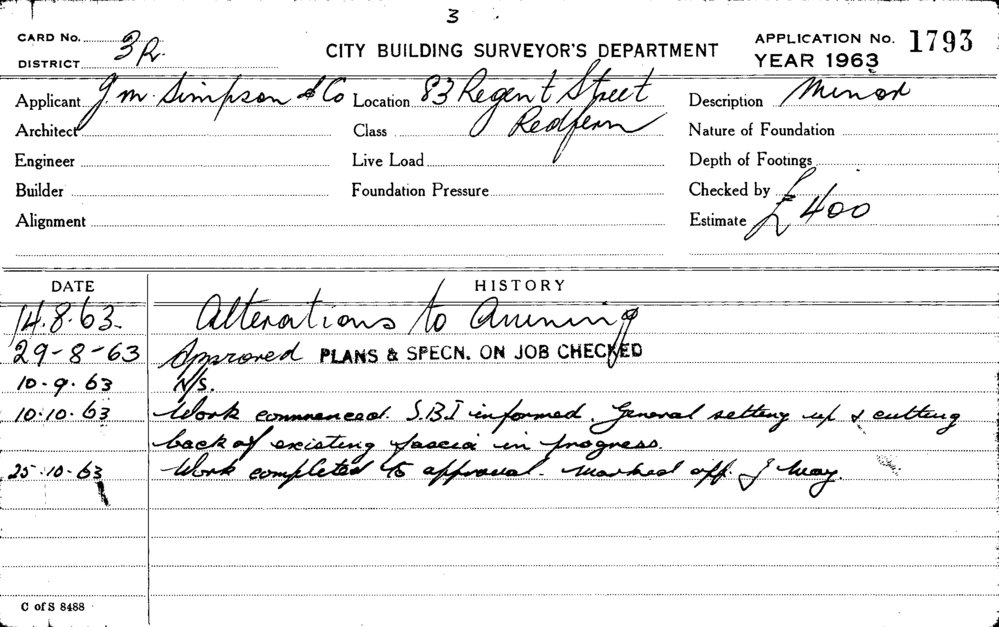 3
CARD No. 3R.
DISTRICT
CITY BUILDING SURVEYOR'S DEPARTMENT
APPLICATION No. 1793
YEAR 1963
Applicant J. M. Simpson & Co Location 83 Regent Street Description Minor
Architect Class Redfern Nature of Foundation
Engineer Live Load Depth of Footings
Builder Foundation Pressure Checked by
Alignment Estimate £400
DATE HISTORY
14.8.63. Alterations to Awning
29-8-63 Approved PLANS & SPECN. ON JOB CHECKED
10.9.63 N/S.
10.10.63 Work commenced. S.B.I informed. General setting up & cutting
back of existing fascia in progress.
25.10.63 Work completed to approval. Marked off. J May.
C of S 8488